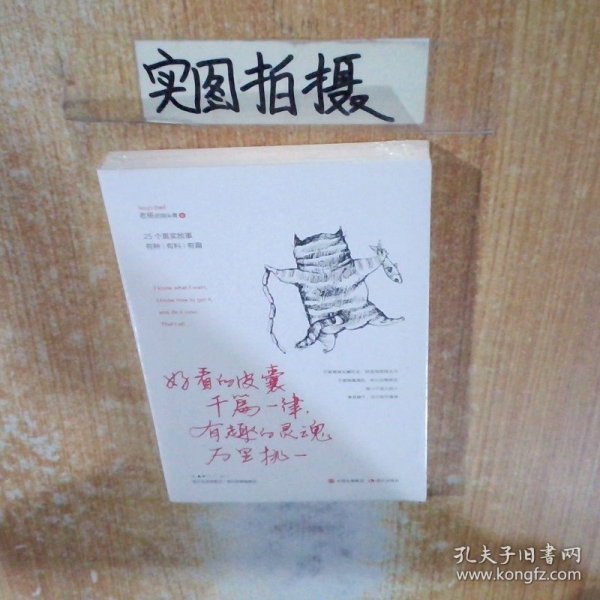 实图拍摄
老杨的猫头鹰
25个真实故事
有种|有料|有趣
I know what I want,
I know how to get it,
and do it now.
That's all.
好看的皮囊
千篇一律,
有趣的灵魂
万里挑一
孔夫子旧书网
www.kongfz.com